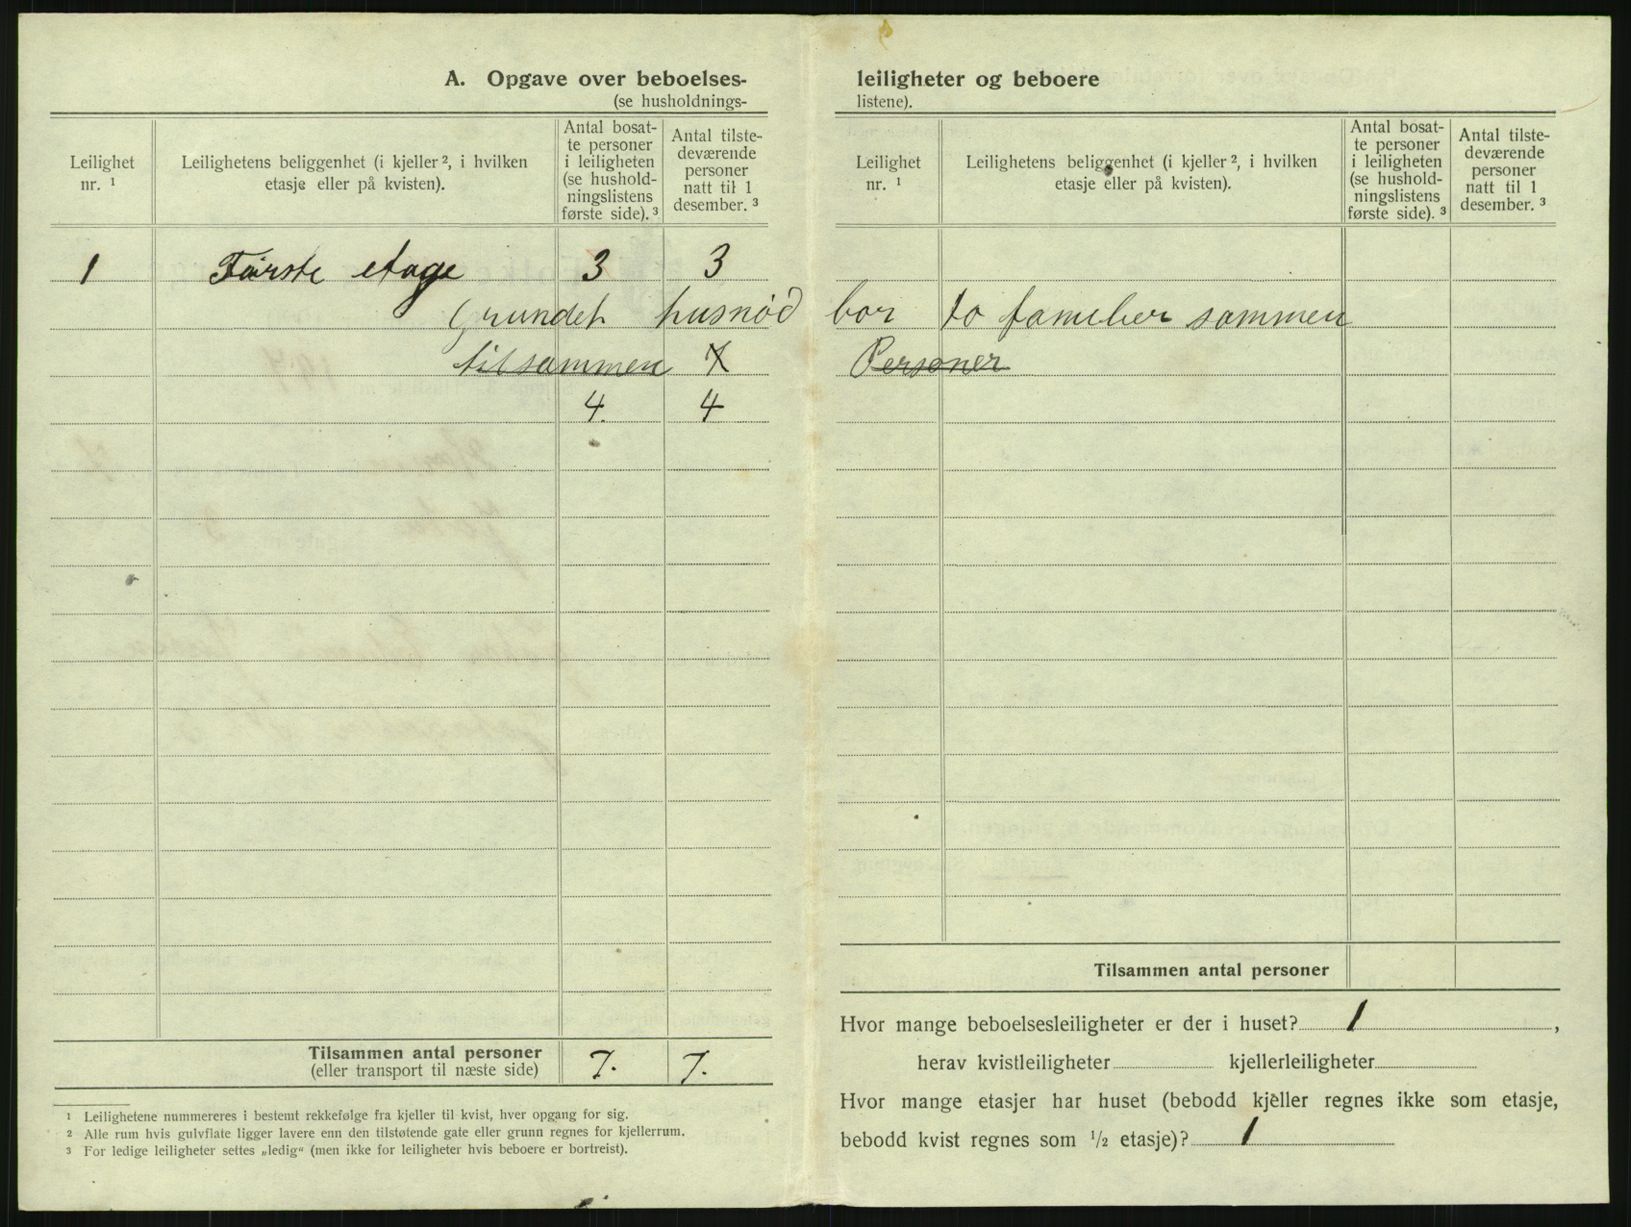 A. Opgave over beboelses-
(se husholdnings-
Leilighet nr. ¹
Leilighetens beliggenhet (i kjeller ², i hvilken etasje eller på kvisten).
Antal bosat-
te personer
i leiligheten
(se hushold-
ningslistens
første side). ³
Antal tilste-
deværende
personer
natt til 1
desember. ³
1 Første etage 3 3
Grundet husnød bor to famelier sammen
tilsammen 7 Personer
4. 4
Tilsammen antal personer 7. 7.
(eller transport til næste side)
¹ Leilighetene nummereres i bestemt rekkefølge fra kjeller til kvist, hver opgang for sig.
² Alle rum hvis gulvflate ligger lavere enn den tilstøtende gate eller grunn regnes for kjellerrum.
³ For ledige leiligheter settes „ledig“ (men ikke for leiligheter hvis beboere er bortreist).
leiligheter og beboere
listene).
Leilighet nr. ¹
Leilighetens beliggenhet (i kjeller ², i hvilken etasje eller på kvisten).
Antal bosat-
te personer
i leiligheten
(se hushold-
ningslistens
første side). ³
Antal tilste-
deværende
personer
natt til 1
desember. ³
Tilsammen antal personer
Hvor mange beboelsesleiligheter er der i huset? 1 ,
herav kvistleiligheter kjellerleiligheter
Hvor mange etasjer har huset (bebodd kjeller regnes ikke som etasje,
bebodd kvist regnes som ½ etasje)? 1